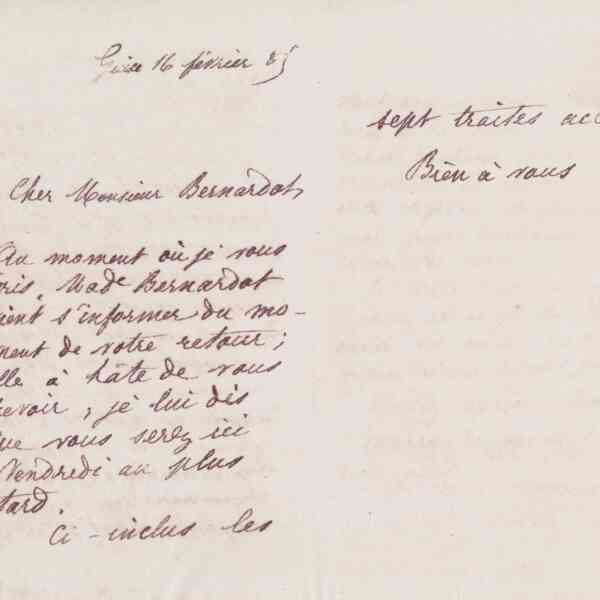 Guise 16 février 85
Cher Monsieur Bernardot,
Au moment où je vous
cris, Made Bernardot
vient s'informer du mo-
ment de votre retour;
elle à hâte de vous
revoir, je lui dis
que vous serez ici
Vendredi au plus
tard.
Ci-inclus les
sept traites acc
Bien à vous